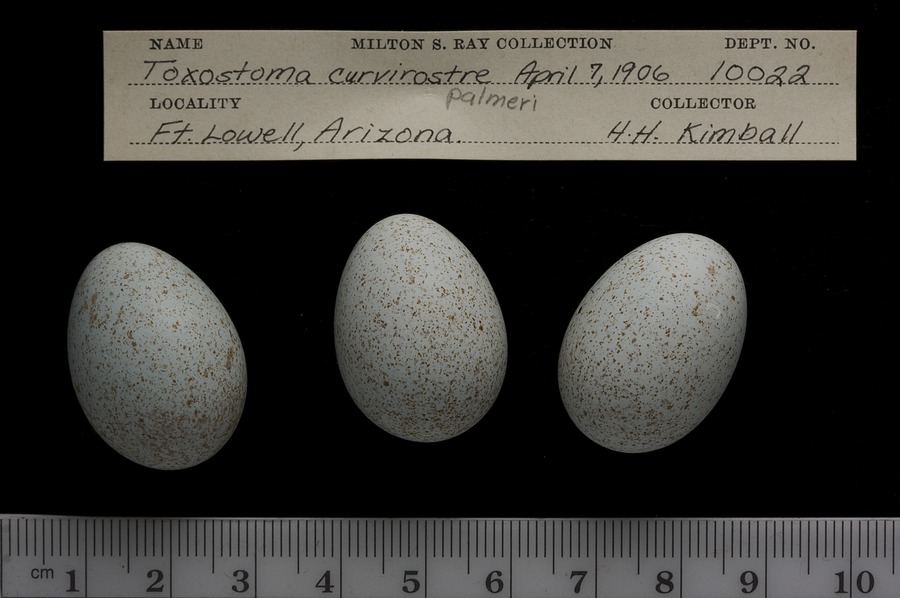 NAME MILTON S. RAY COLLECTION DEPT. NO.
Toxostoma curvirostre April 7, 1906 10022
palmeri
LOCALITY COLLECTOR
Ft. Lowell, Arizona. H.H. Kimball
cm 1 2 3 4 5 6 7 8 9 10